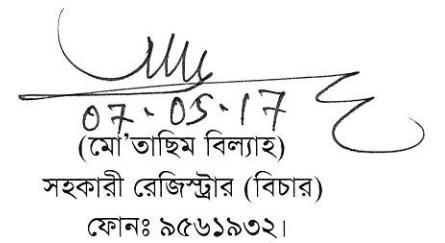 07.05.17
(মো'তাছিম বিল্যাহ)
সহকারী রেজিস্ট্রার (বিচার)
ফোনঃ ৯৫৬১৯৩২।